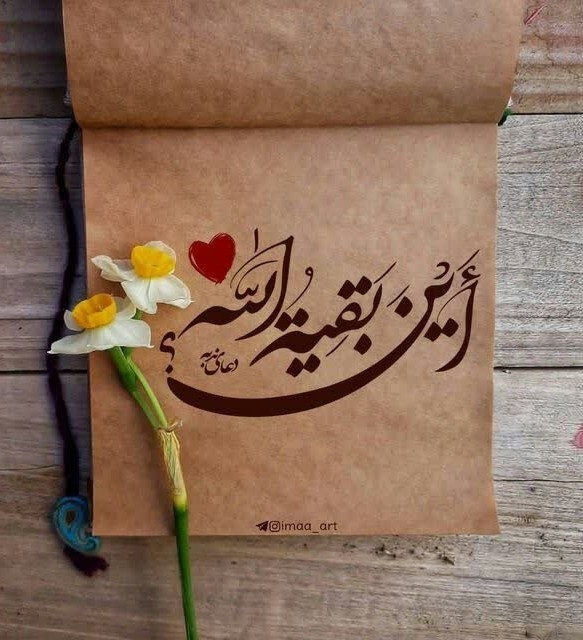 أَیْنَ بَقیةُ الله؟
دعای ندبه
imaa_art